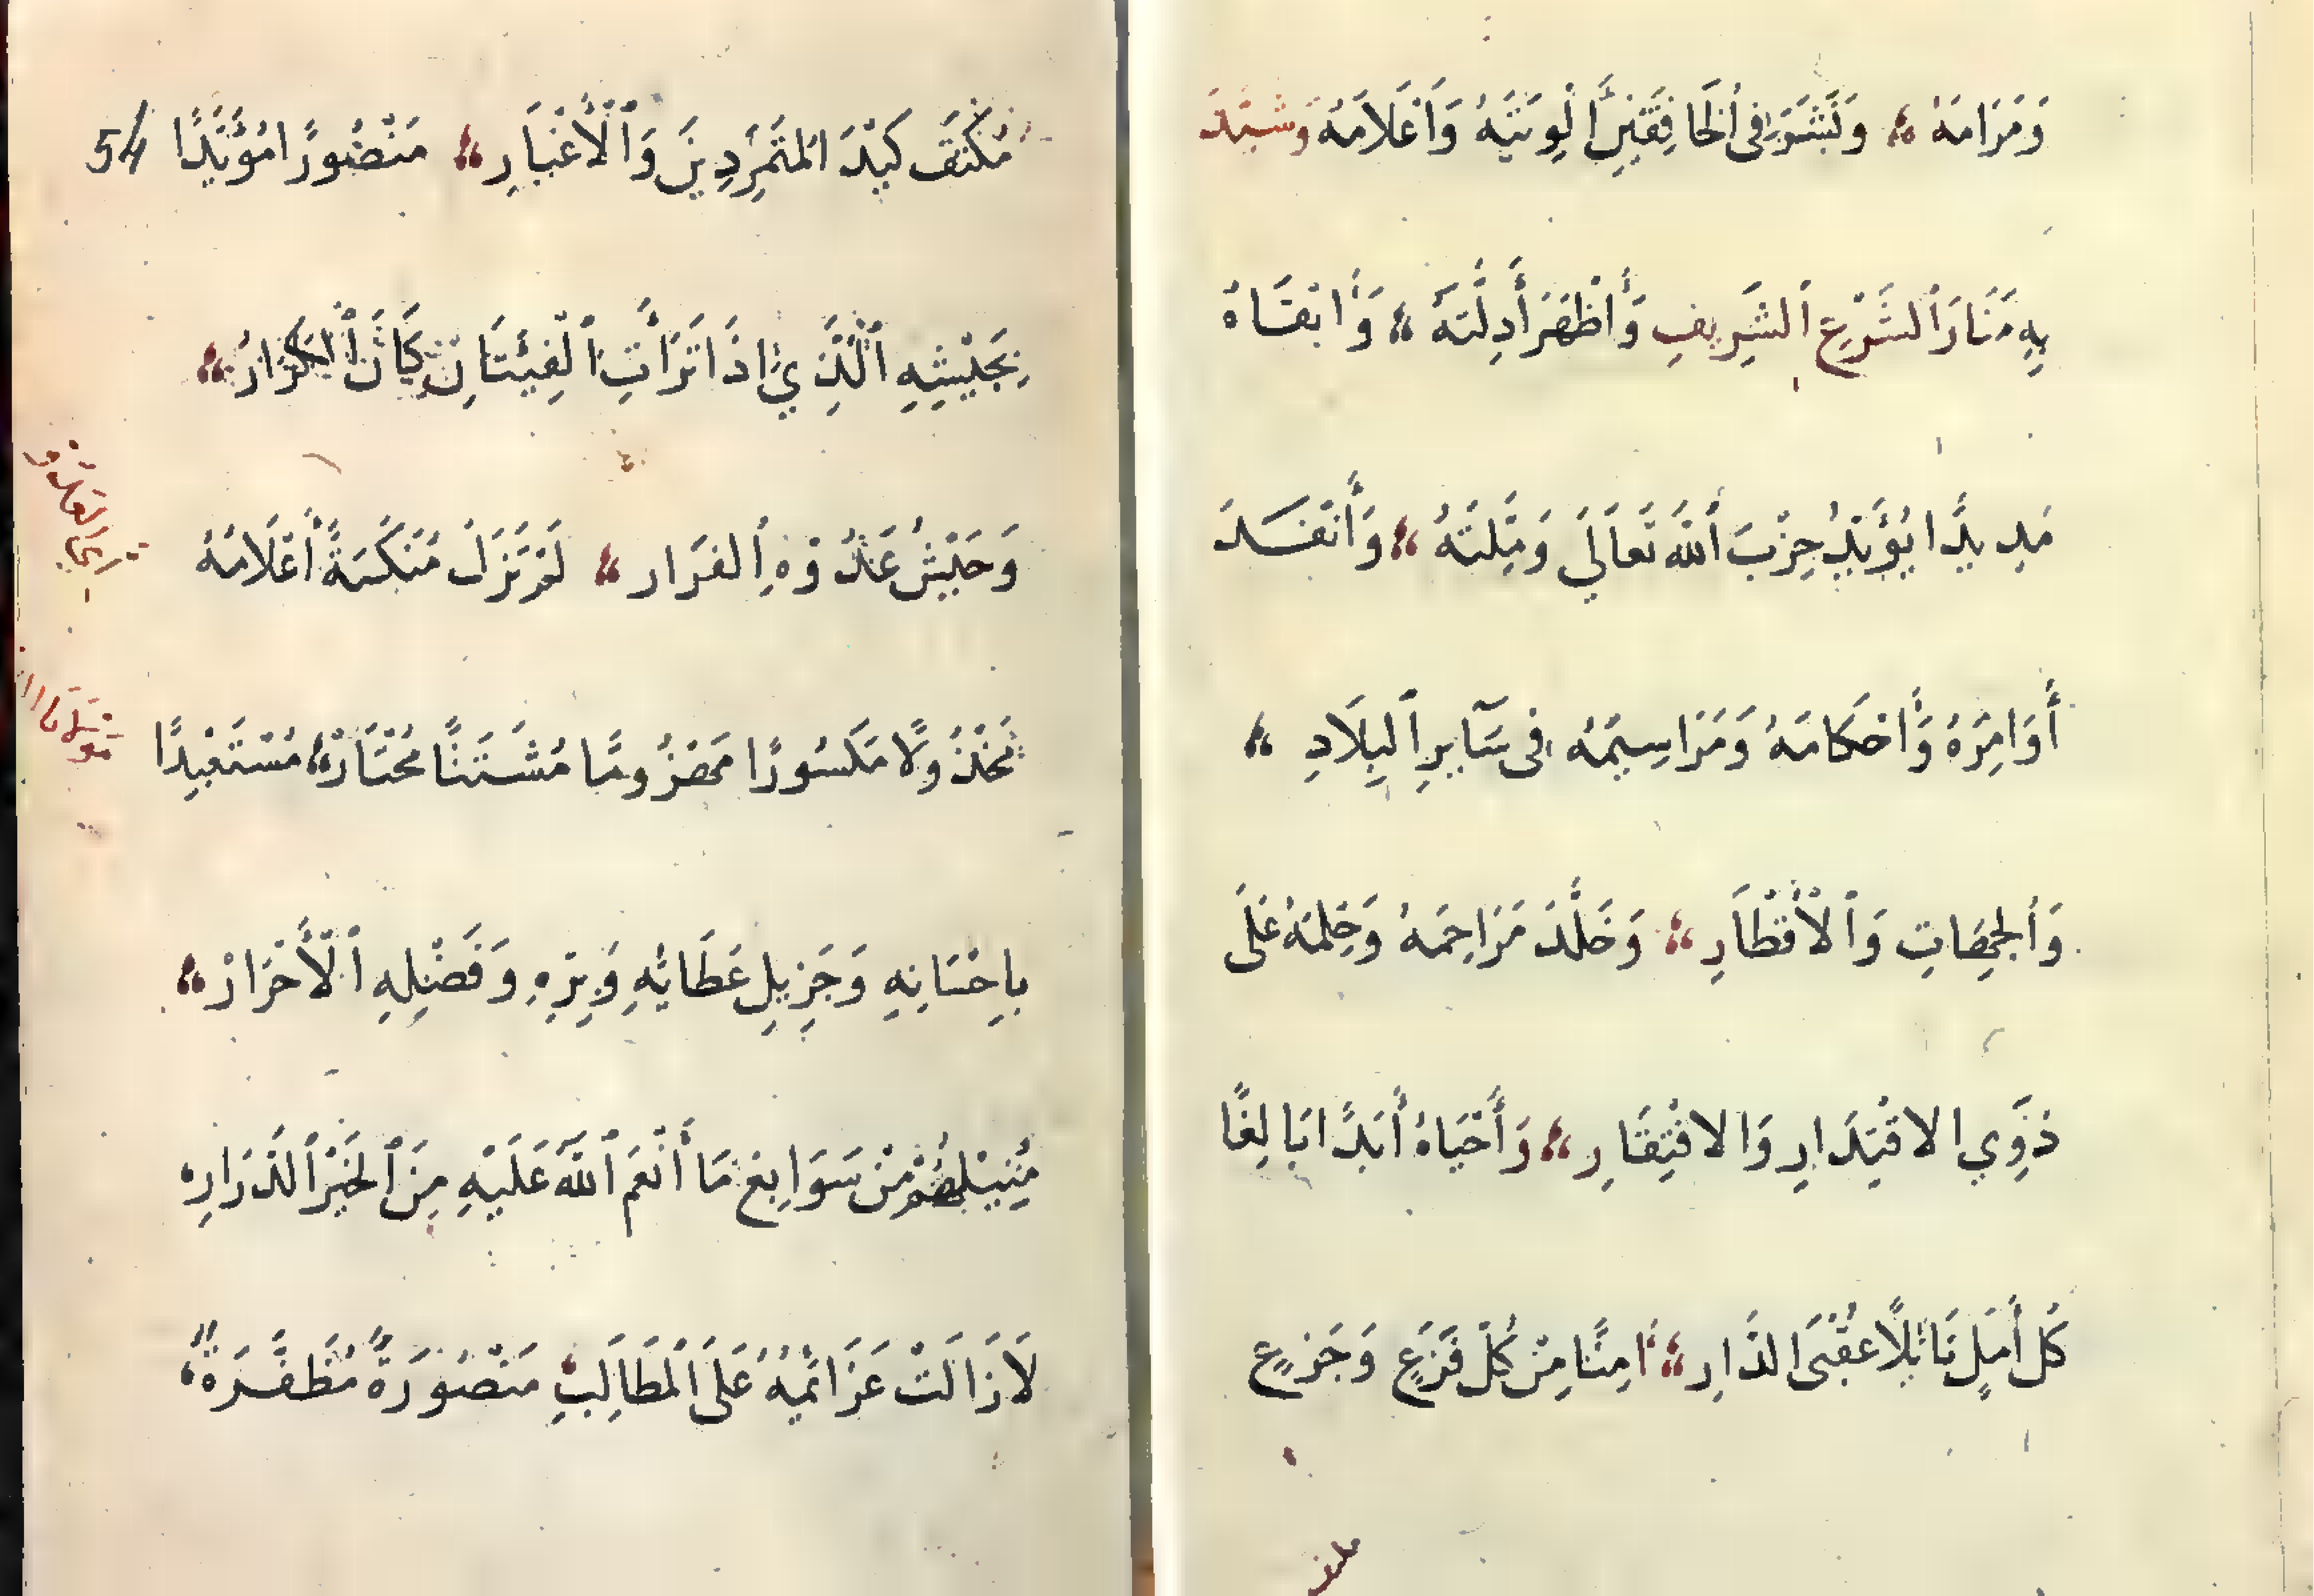 وَمَرَامَهُ ؛ وَنَشَرَ فِي الخَافِقَيْنِ أَلْوِيَتِهُ وَأَعْلَامَهُ وَشَيَّدَ
بِهِ مَنَارَ الشَّرْعِ الشَّرِيفِ وَأَظْهَرَ أَدِلَّتَهُ ؛ وَأَبْقَاهُ
مَدِيدًا يُؤَيِّدُ حِزْبَ اللهِ تَعَالَى وَمِلَّتَهُ ؛ وَأَنْفَدَ
أَوَامِرَهُ وَأَحْكَامَهُ وَمَرَاسِيمَهُ فِي سَآيِرِ البِلَادِ ؛
وَالجِهَاتِ وَالْأَقْطَارِ ؛ وَخَلَّدَ مَرَاحِمَهُ وَحِلْمَهُ عَلَى
ذَوِي الاقْتِدَارِ وَالافْتِقَارِ ؛ وَأَحْيَاهُ أَبَدًا بَالِغًا
كُلَّ أَمَلٍ نَائِلًا عُقْبَى الدَّارِ ؛ آمِنًا مِنْ كُلِّ فَزَعٍ وَجَزَعٍ
كَيْدَ المُتَمَرِّدِينَ وَالْأَغْيَارِ ؛ مَنْصُورًا مُؤَيَّدًا 54
بِجَيْشِهِ الَّذِي إِذَا تَرَاءَتِ الْفِئَتَانِ كَانَ الكَرَّارُ ؛
وَجَيْشُ عَدُوِّهِ الفَرَّار ؛ لَمْ تَزَلْ مُنَكَّسَةً أَعْلَامُهُ
مَخْذُولًا مَكْسُورًا مَهْزُومًا مُشَتَّتًا مُحْتَارْ ؛ مُسْتَعْبِدًا
بِإِحْسَانِهِ وَجَزِيلِ عَطَائِهِ وَبِرِّهِ وَفَضْلِهِ الْأَحْرَارْ ؛
مُنِيلَهُمْ مِنْ سَوَابِغِ مَا أَنْعَمَ اللهُ عَلَيْهِ مِنَ الخَيْرِ الْدَرَارِ
لَا زَالَتْ عَزَائِمُهُ عَلَى المَطَالِبِ مَنْصُورَةً مُظَفَّرَةً ؛